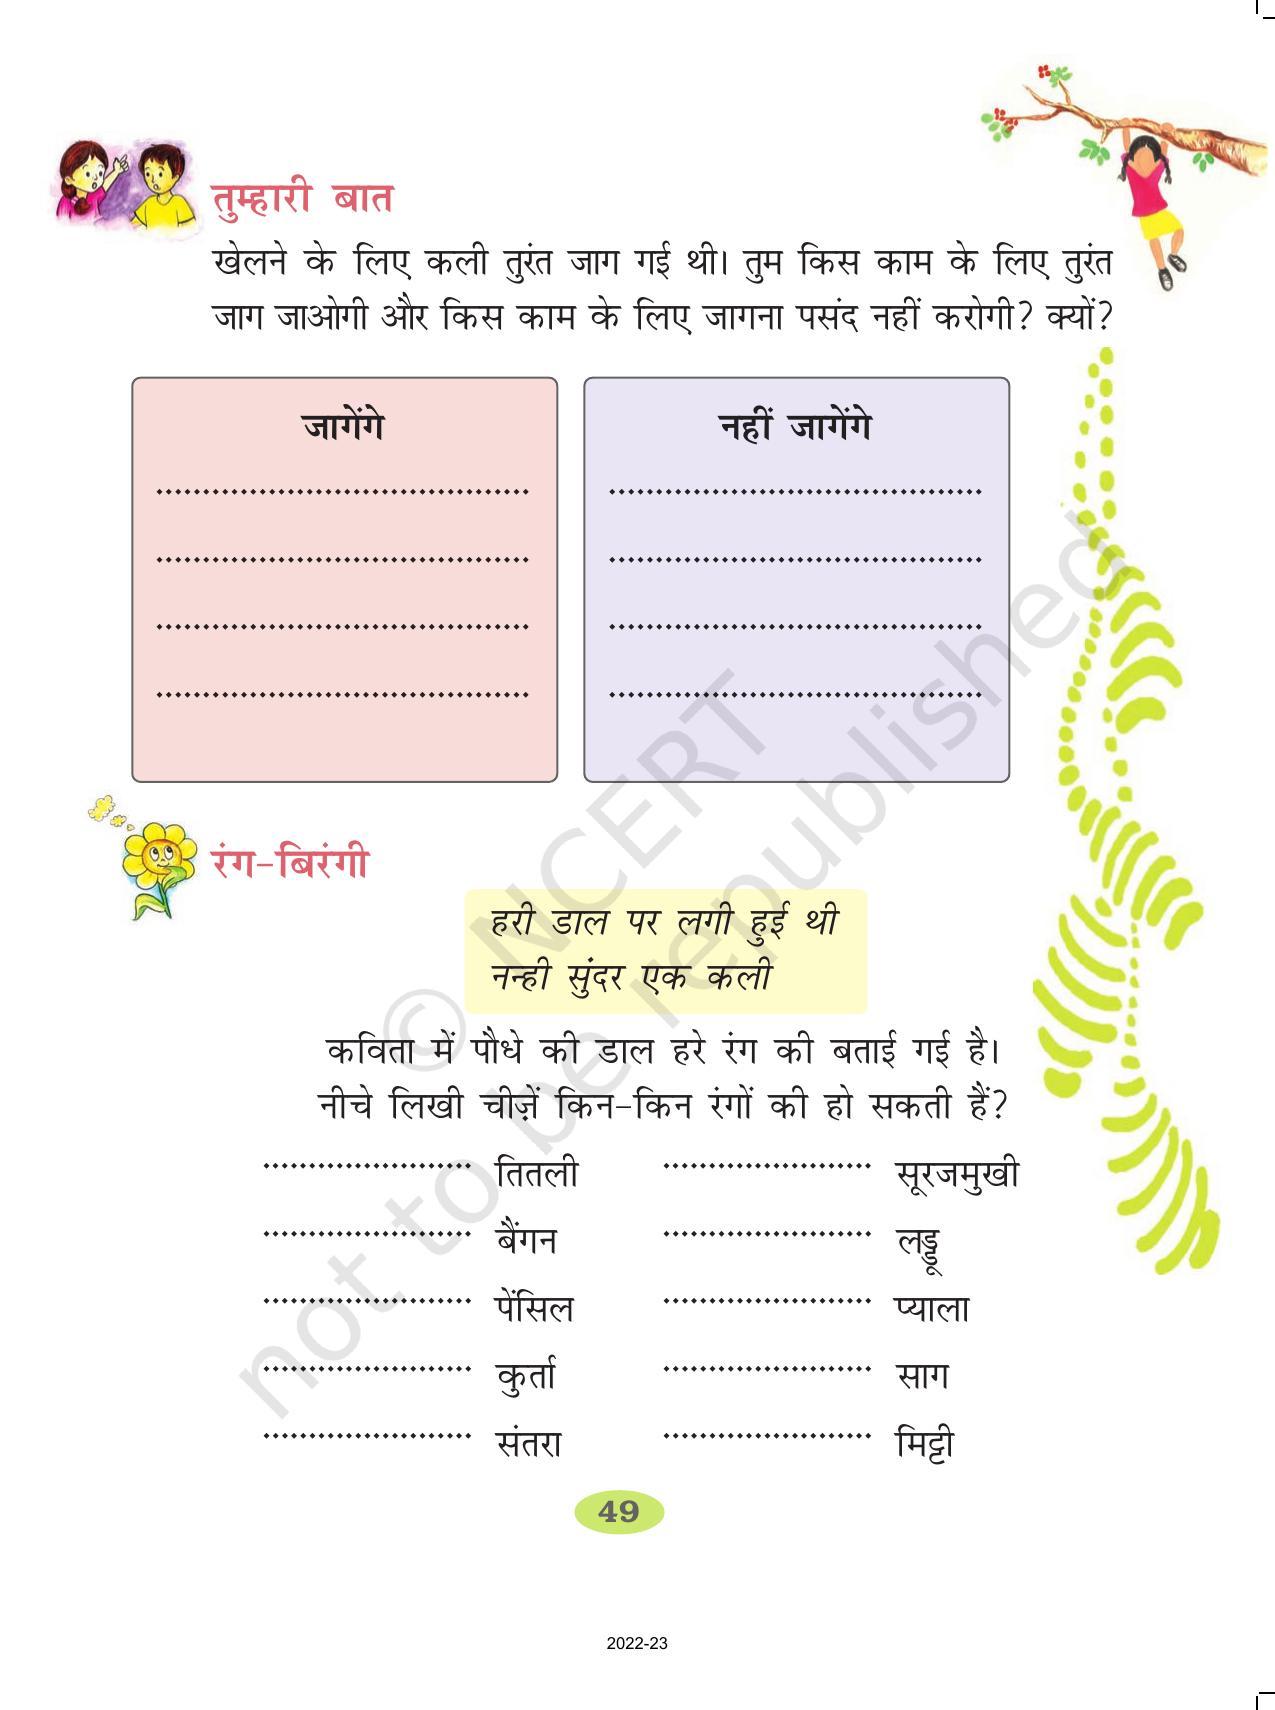 तुम्हारी बात
खेलने के लिए कली तुरंत जाग गई थी। तुम किस काम के लिए तुरंत
जाग जाओगी और किस काम के लिए जागना पसंद नहीं करोगी? क्यों?
जागेंगे
नहीं जागेंगे
रंग-बिरंगी
हरी डाल पर लगी हुई थी
नन्ही सुंदर एक कली
कविता में पौधे की डाल हरे रंग की बताई गई है।
नीचे लिखी चीज़ें किन-किन रंगों की हो सकती हैं?
तितली सूरजमुखी
बैंगन लड्डू
पेंसिल प्याला
कुर्ता साग
संतरा मिट्टी
49
2022-23
© NCERT
not to be republished